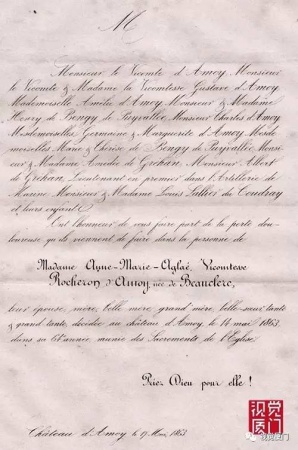 M
Monsieur le Vicomte d'Amoy, Monsieur
le Vicomte & Madame la Vicomtesse Gustave d'Amoy,
Mademoiselle Amélie d'Amoy, Monsieur & Madame
Henry de Bengy de Puyvallée, Monsieur Charles d'Amoy
Mesdemoiselles Germaine & Marguerite d'Amoy, Mesde
moiselles Marie & Thérèse de Bengy de Puyvallée, Monsi
eur & Madame de Gréban, Monsieur Albert
de Gréban, Lieutenant en premier dans l'Artillerie de
Marine, Monsieur & Madame Louis Lallier du Coudray
& leurs enfants,
Ont l'honneur de vous faire part de la perte dou-
loureuse qu'ils viennent de faire dans la personne de
Madame Anne-Marie-Aglaé, Vicomtesse
Rocheron d'Amoy née de Beauclerc,
leur épouse, mère, belle mère, grand'mère, belle-sœur, tante
& grand'tante, décédée au château d'Amoy, le 14 mai 1863,
dans sa année, munie des Sacrements de l'Eglise.
Priez Dieu pour elle !
Château d'Amoy le 17 Mai 1863
视觉医门
视觉医门